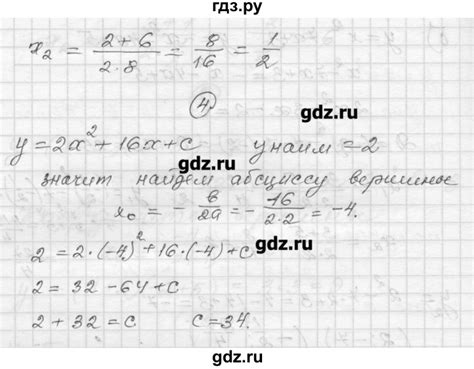 гдз.ру
x₂ = (2+6)/(2·8) = 8/16 = 1/2
4.
gdz.ru
y=2x²+16x+c    y наим =2
значит найдем абсциссу вершины
gdz.ru
x₀ = - b/2a = - 16/2·2 = -4.
gdz.ru
2 = 2·(-4)²+16·(-4)+c
2 = 32 -64+c
gdz.ru
2 + 32 = c    c=34.
gdz.ru